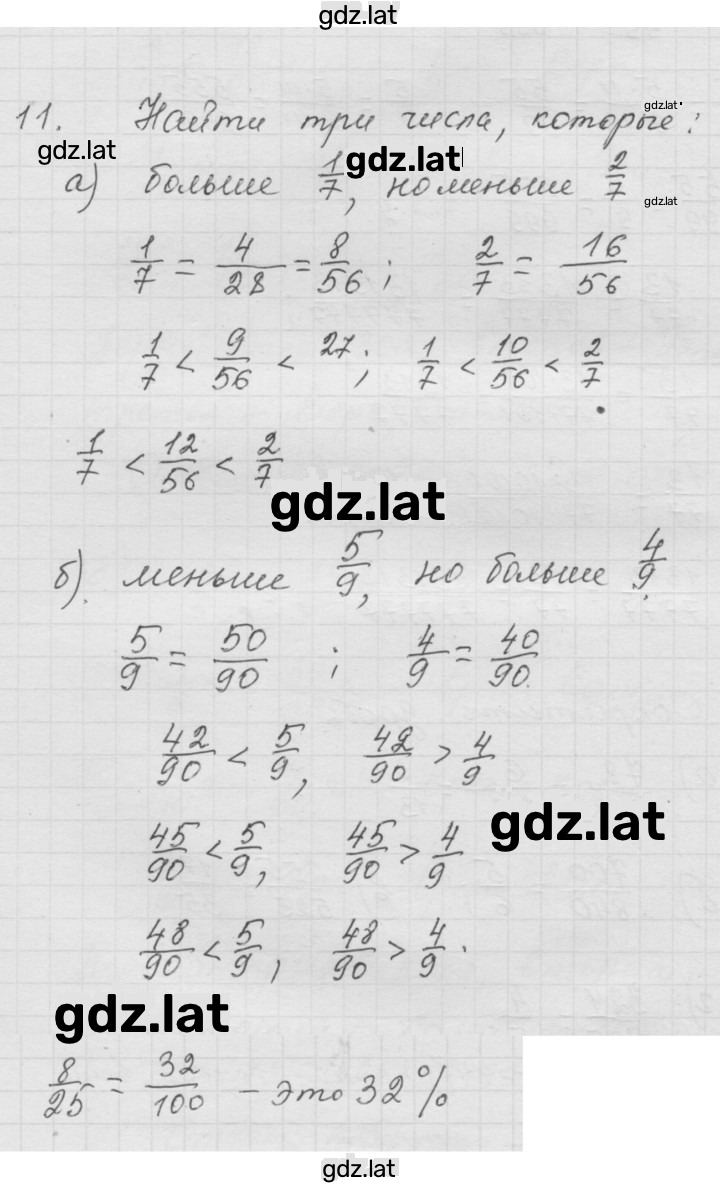 gdz.lat
11. Найти три числа, которые:
gdz.lat
gdz.lat
gdz.lat
а) больше 1/7, но меньше 2/7
gdz.lat
1/7 = 4/28 = 8/56 ; 2/7 = 16/56
1/7 < 9/56 < 27 ; 1/7 < 10/56 < 2/7
1/7 < 12/56 < 2/7
gdz.lat
б) меньше 5/9, но больше 4/9.
5/9 = 50/90 ; 4/9 = 40/90.
42/90 < 5/9, 42/90 > 4/9
gdz.lat
45/90 < 5/9, 45/90 > 4/9
48/90 < 5/9, 48/90 > 4/9.
gdz.lat
8/25 = 32/100 – это 32%
gdz.lat